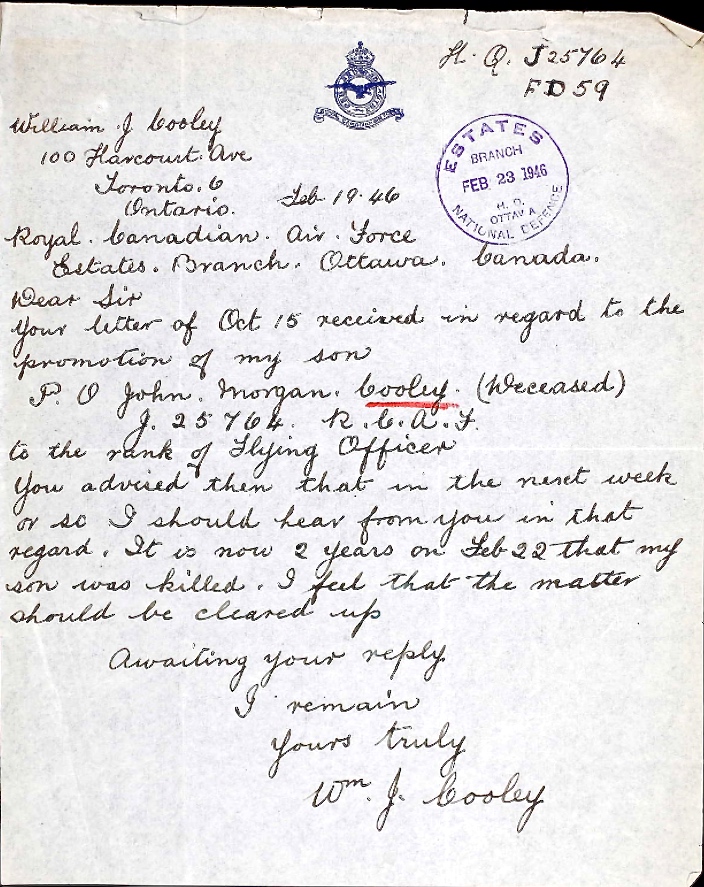 H. Q. J25764
FD59
William J Cooley
100 Harcourt Ave
Toronto. 6
Ontario. Feb 19. 46
ESTATES
BRANCH
FEB 23 1946
H. Q.
OTTAWA
NATIONAL DEFENCE
Royal. Canadian. Air. Force
Estates. Branch. Ottawa. Canada.
Dear Sir
Your letter of Oct 15 received in regard to the
promotion of my son
P. O John. Morgan. Cooley. (Deceased)
J. 25764. R. C. A. F.
to the rank of Flying Officer
You advised then that in the next week
or so I should hear from you in that
regard. It is now 2 years on Feb 22 that my
son was killed. I feel that the matter
should be cleared up
Awaiting your reply
I remain
Yours truly
Wm. J. Cooley